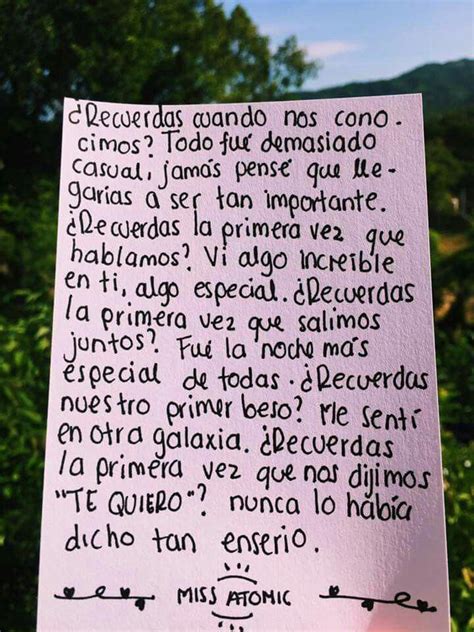 ¿Recuerdas cuando nos cono-
cimos? Todo fué demasiado
casual, jamás pensé que lle-
garías a ser tan importante.
¿Recuerdas la primera vez que
hablamos? Vi algo increíble
en ti, algo especial. ¿Recuerdas
la primera vez que salimos
juntos? Fué la noche más
especial de todas. ¿Recuerdas
nuestro primer beso? Me sentí
en otra galaxia. ¿Recuerdas
la primera vez que nos dijimos
"TE QUIERO"? nunca lo había
dicho tan enserio.
MISS ATOMIC